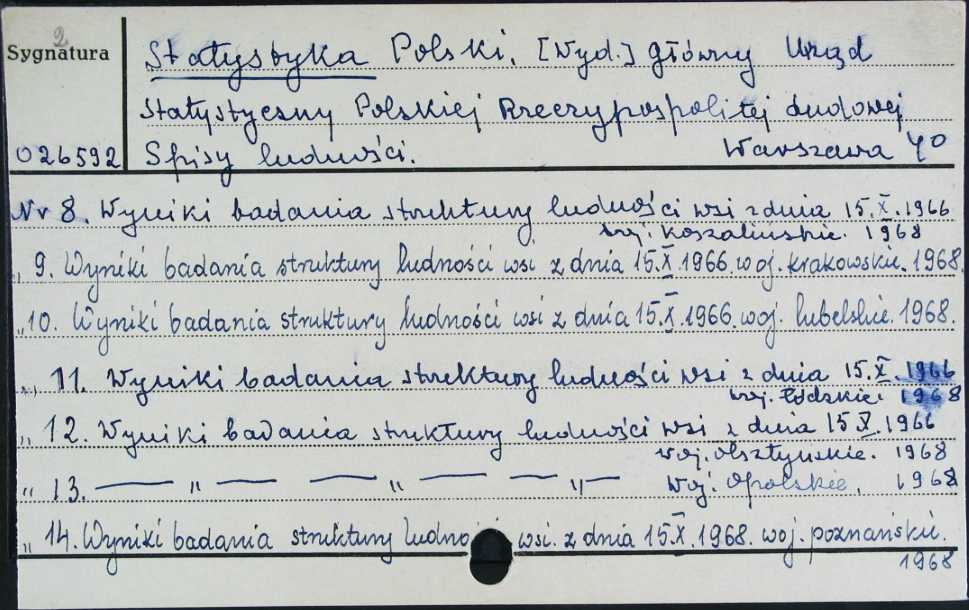 2
Sygnatura
Statystyka Polski. [Wyd.] Główny Urząd
Statystyczny Polskiej Rzeczypospolitej Ludowej
026592 Spisy ludności. Warszawa 40
Nr 8. Wyniki badania struktury ludności wsi z dnia 15.X.1966
woj. Koszalińskie. 1968
„ 9. Wyniki badania struktury ludności wsi z dnia 15.X.1966. woj. krakowskie. 1968.
„ 10. Wyniki badania struktury ludności wsi z dnia 15.X.1966. woj. lubelskie. 1968.
„ 11. Wyniki badania struktury ludności wsi z dnia 15.X.1966
woj. łódzkie: 1968
„ 12. Wyniki badania struktury ludności wsi z dnia 15.X.1966
woj. olsztyńskie. 1968
„ 13. — „ — — „ — — „ — woj. opolskie. 1968
„ 14. Wyniki badania struktury ludno wsi. z dnia 15.X.1968. woj. poznańskie.
1968